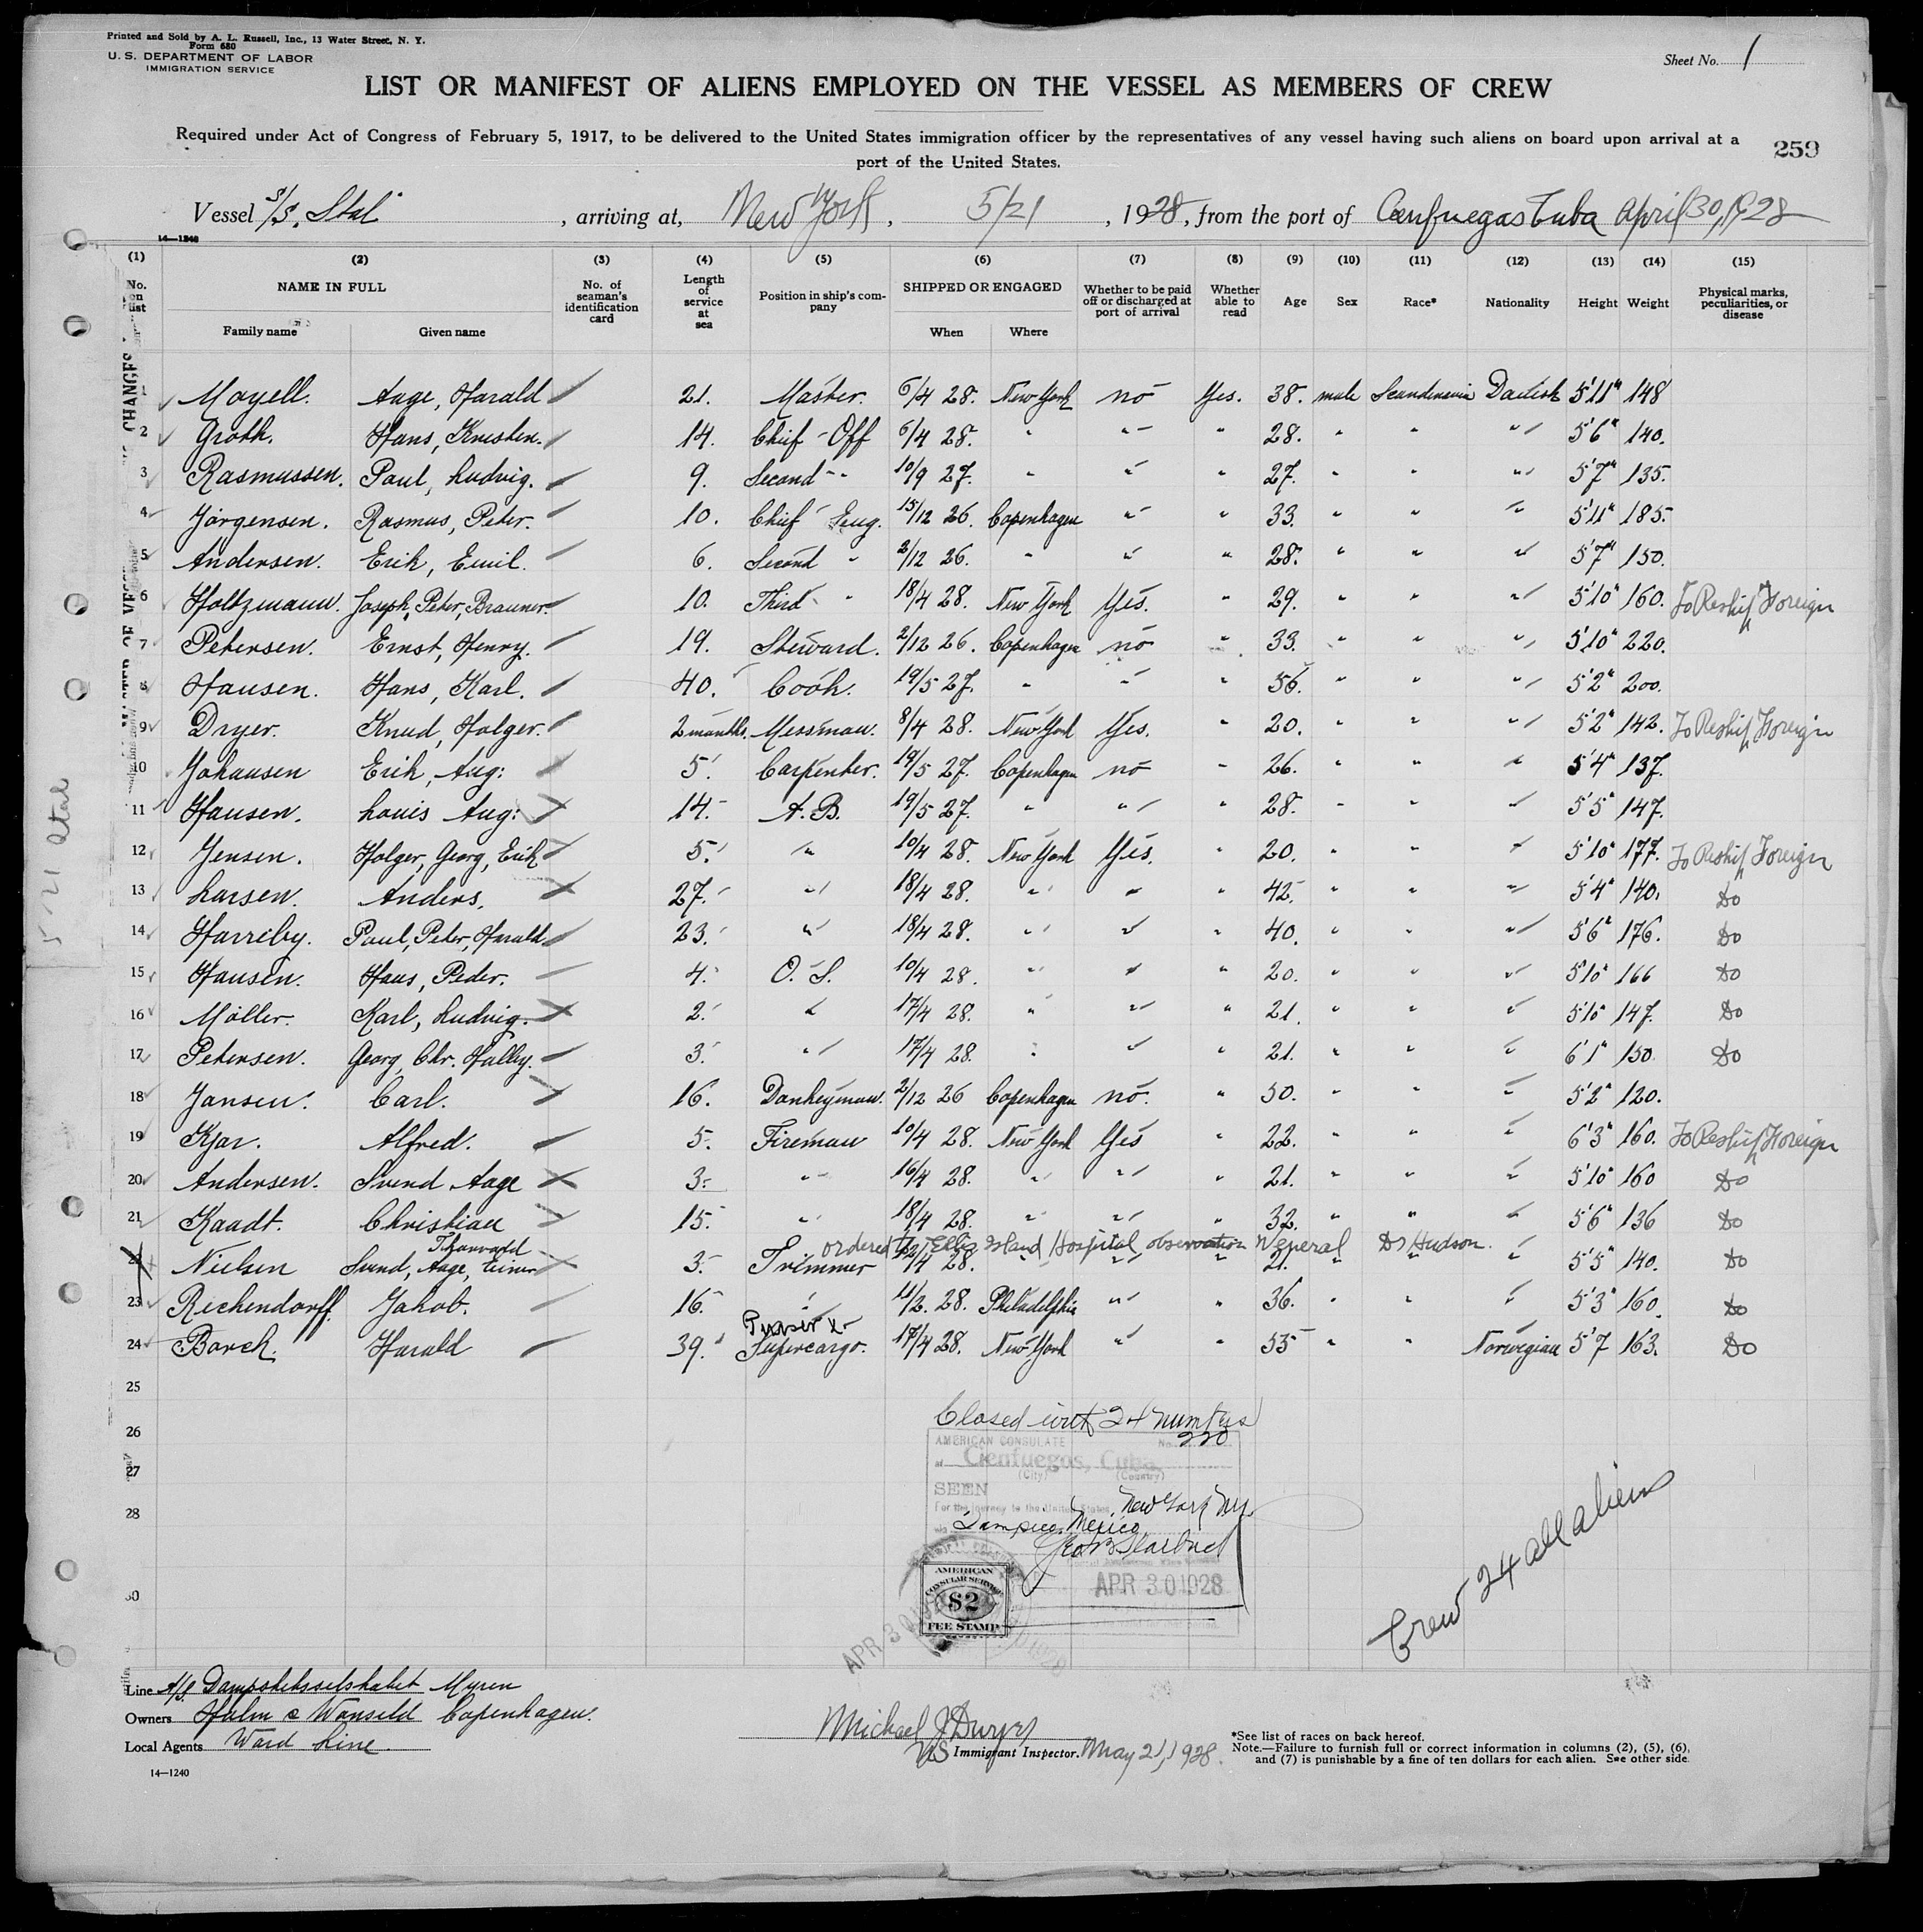 Printed and Sold by A. L. Russell, Inc., 13 Water Street, N. Y.
Form 680
U. S. DEPARTMENT OF LABOR
IMMIGRATION SERVICE
Sheet No. 1
LIST OR MANIFEST OF ALIENS EMPLOYED ON THE VESSEL AS MEMBERS OF CREW
Required under Act of Congress of February 5, 1917, to be delivered to the United States immigration officer by the representatives of any vessel having such aliens on board upon arrival at a
port of the United States.
259
Vessel S/S. Stal , arriving at, New York , 5/21 , 1928, from the port of Cenfuegas Cuba April 30, 1928
14—1240
(1) (2) (3) (4) (5) (6) (7) (8) (9) (10) (11) (12) (13) (14) (15)
No. on list NAME IN FULL Family name Given name No. of seaman's identification card Length of service at sea Position in ship's company SHIPPED OR ENGAGED When Where Whether to be paid off or discharged at port of arrival Whether able to read Age Sex Race* Nationality Height Weight Physical marks, peculiarities, or disease
1 Moyell. Aage, Harald 21. Master. 6/4 28. New York no Yes. 38. male Scandinavia Danish 5'11" 148
2 Groth. Hans, Kresten. 14. Chief - Off 6/4 28. " " " 28. " " " 5'6" 140.
3 Rasmussen. Paul, Ludvig. 9. Second - " 10/9 27. " " " 27. " " " 5'7" 135.
4 Jörgensen. Rasmus, Peter. 10. Chief Eng. 15/12 26. Copenhagen " " 33. " " " 5'11" 185.
5 Andersen. Erik, Emil. 6. Second " 2/12 26. " " " 28. " " " 5'7" 150.
6 Holtzmann. Joseph, Peter, Brauner. 10. Third " 18/4 28. New York Yes. " 29. " " " 5'10" 160. To Reship Foreign
7 Petersen. Ernst, Henry. 19. Steward. 2/12 26. Copenhagen no " 33. " " " 5'10" 220.
8 Hansen. Hans, Karl. 40. Cook. 19/5 27. " " " 56. " " " 5'2" 200.
9 Dryer. Knud, Holger. 2 months. Messman. 8/4 28. New York Yes. " 20. " " " 5'2" 142. To Reship Foreign
10 Johansen Erik, Aug: 5. Carpenter. 19/5 27. Copenhagen no " 26. " " " 5'4" 137.
11 Hansen. Louis Aug: 14. A. B. 19/5 27. " " " 28. " " " 5'5" 147.
12 Jensen. Holger, Georg, Erik 5. " 10/4 28. New York Yes. " 20. " " " 5'10" 177. To Reship Foreign
13 Larsen. Anders. 27. " 18/4 28. " " " 42. " " " 5'4" 140. Do
14 Harreby. Paul, Peter, Harald 23. " 18/4 28. " " " 40. " " " 5'6" 176. Do
15 Hansen. Hans, Peder. 4. O. S. 10/4 28. " " " 20. " " " 5'10" 166 Do
16 Möller. Karl, Ludvig. 2. " 17/4 28. " " " 21. " " " 5'10" 147. Do
17 Petersen. Georg, Chr. Halley. 3. " 17/4 28. " " " 21. " " " 6'1" 150. Do
18 Jansen. Carl. 16. Donkeyman. 2/12 26 Copenhagen no. " 50. " " " 5'2" 120.
19 Kjar. Alfred. 5. Fireman 10/4 28. New York Yes " 22. " " " 6'3" 160. To Reship Foreign
20 Andersen. Svend Aage 3. " 16/4 28. " " " 21. " " " 5'10" 160 Do
21 Kaadt. Christian 15. " 18/4 28. " " " 32. " " " 5'6" 136 Do
ordered to Ellis Island Hospital observation Veneral Dr Hudson.
22 Nielsen Svend, Aage, Einar Thorvald 3. Trimmer 4 28. " " " 21. " " " 5'5" 140. Do
23 Rechendorff. Jakob. 16. " 11/2. 28. Philadelphia " " 36. " " " 5'3" 160. Do
24 Borch. Harald 39. Purser & Supercargo. 17/4 28. New York " " 55 " " Norwegian 5'7 163. Do
25
26
27
28
30
Closed with 24 numbers
AMERICAN CONSULATE No. 220
at Cienfuegos, Cuba.
(City) (Country)
SEEN
For the journey to the United States New York NY.
Tampico, Mexico
APR 30 1928
AMERICAN
CONSULAR SERVICE
$2
FEE STAMP
APR 30 1928
Crew 24 all aliens
5-21 Stal
Line A/S. Dampskibsselskabet Myren
Owners Holm & Wonsild Copenhagen.
Local Agents Ward Line
14—1240
Michael J Dwyer
US Immigrant Inspector. May 21, 1928.
*See list of races on back hereof.
Note.—Failure to furnish full or correct information in columns (2), (5), (6),
and (7) is punishable by a fine of ten dollars for each alien. See other side.